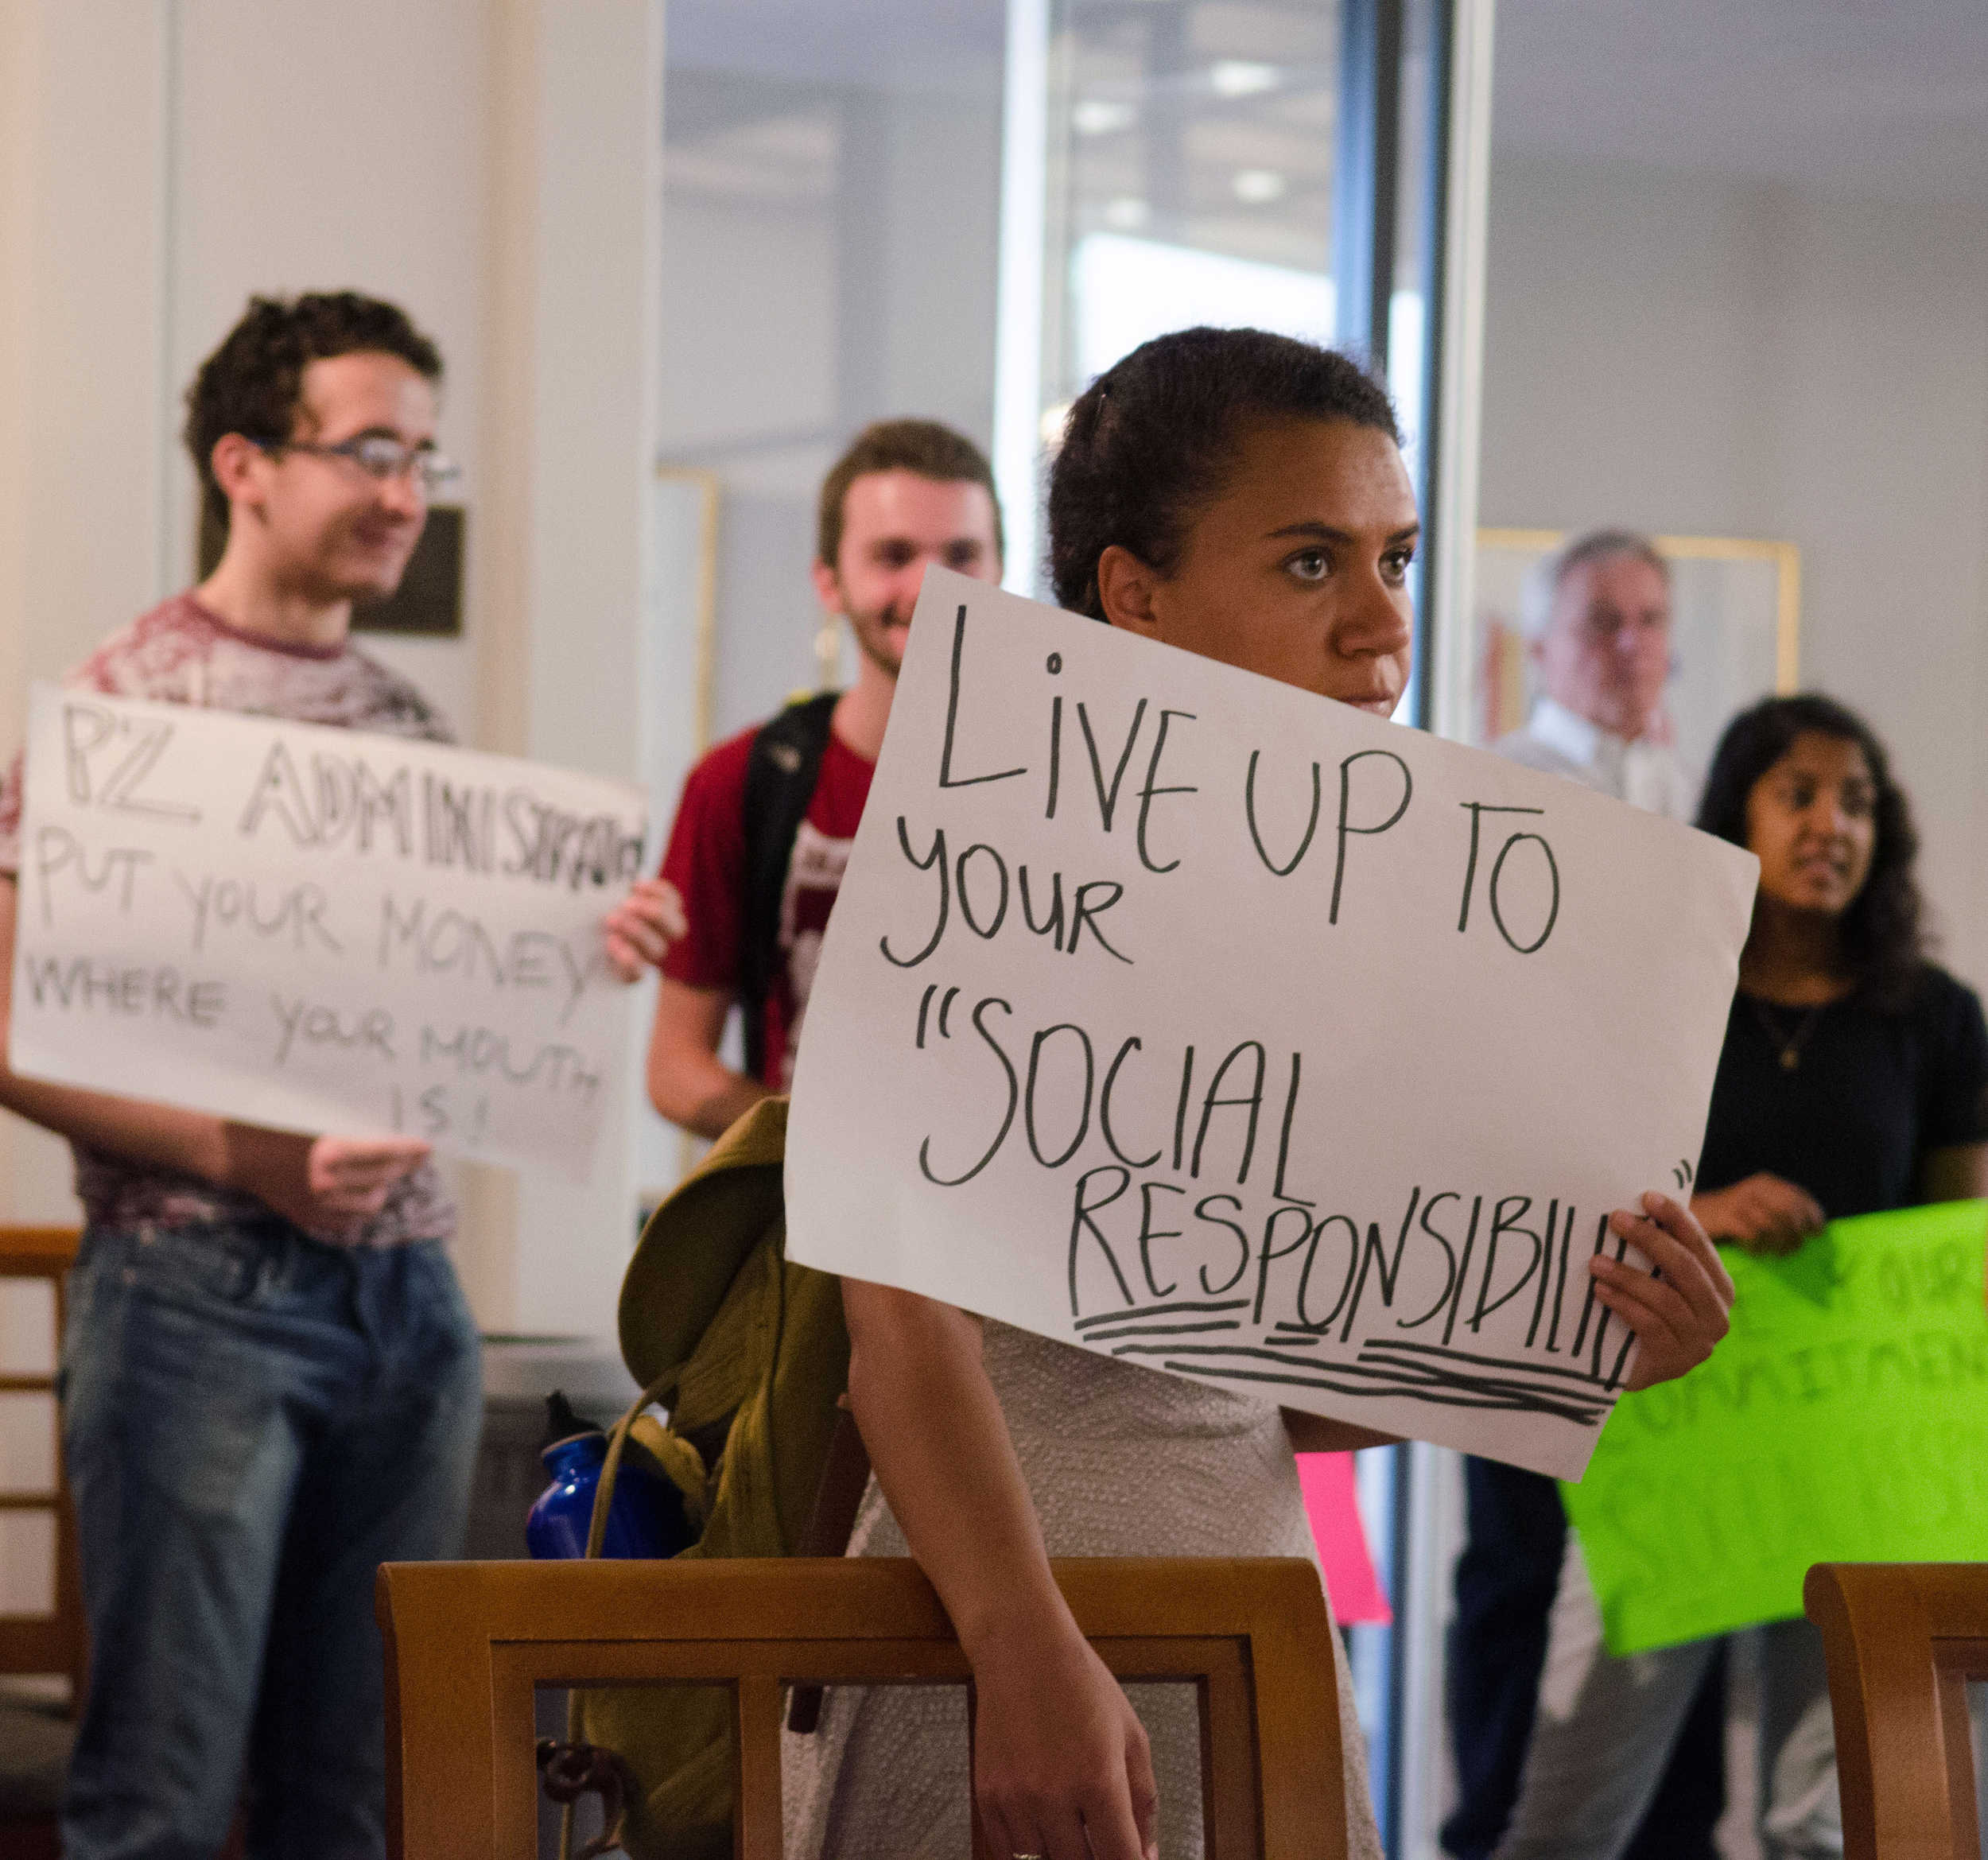 PZ ADMINISTRATION
PUT YOUR MONEY
WHERE YOUR MOUTH
IS!
LIVE UP TO
YOUR
"SOCIAL
RESPONSIBILITY"
YOUR
COMMITMEN